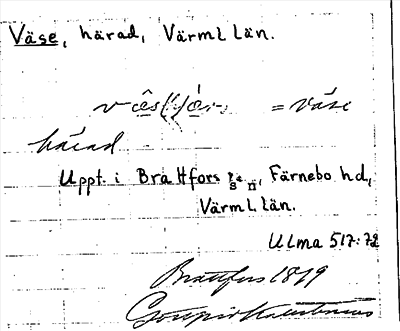 Väse, härad, Värml län.
= Väse
härad
Uppt. i Brattfors sn, Färnebo hd,
Värml län.
Ulma 517:72
Brattfors 1879